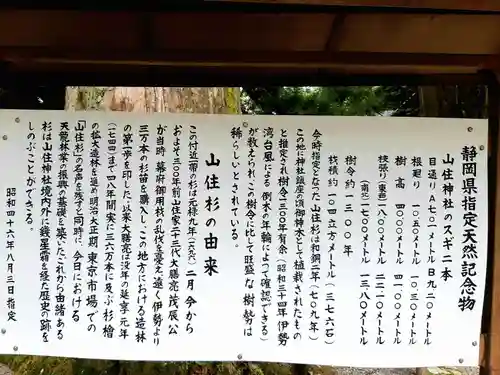 静岡県指定天然記念物
山住神社のスギ二本
目通り A七〇一メートル B九二〇メートル
根廻り 一〇・五〇メートル 一〇・三〇メートル
樹高 四〇・〇〇メートル 四一・〇〇メートル
枝張り(東西)一八・〇〇メートル 二二・二〇メートル
(南北)二七・五〇メートル 一三・八〇メートル
枝積約一〇四立方メートル(三七六石)
樹令約一三〇〇年
今時指定となった山住杉は和銅二年(七〇九年)
この地に神社鎮座の頃御神木として植栽されたもの
と推定され樹令一三〇〇年有余(昭和三十四年伊勢
湾台風による倒木の年輪によって確認できる)
が数えられ、この樹令にして旺盛な樹勢は
稀らしいとされている。
山住杉の由来
この付近一帯の杉は元禄九年(一六九六)二月今から
およそ三〇〇年前山住家二十三代大膳亮茂辰公
が当時、幕府御用枝の乱伐を憂え、遠く伊勢より
三万本の杉苗を購入し、この地方における造林
の第一歩を印した。以来大膳家は没年の延享元年
(一七四四)まで四八年間実に三六万本に及ぶ杉檜
の拡大造林を進め明治大正期東京市場での
「山住杉」の名声を残すと同時に、今日における
天龍林業の振興の基礎を築いた。これから由緒ある
杉は山住神社境内外に幾星霜を経た歴史の跡を
しのぶことができる。
昭和四十六年八月三日指定